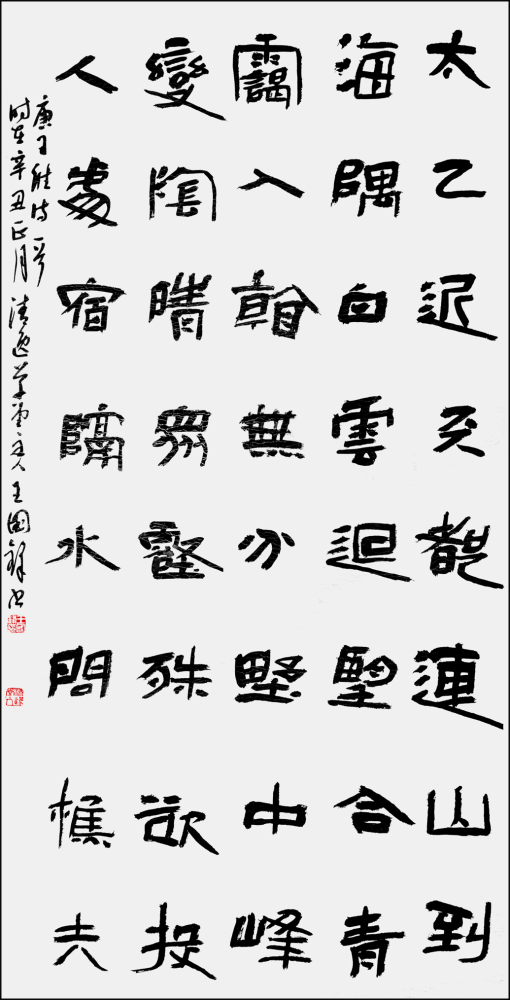 太乙近天都連山到
海隅白雲迴望合青
靄入看無分野中峰
變陰晴衆壑殊欲投
人處宿隔水問樵夫
唐王維詩一首
时在辛丑正月清逸堂主人王國书